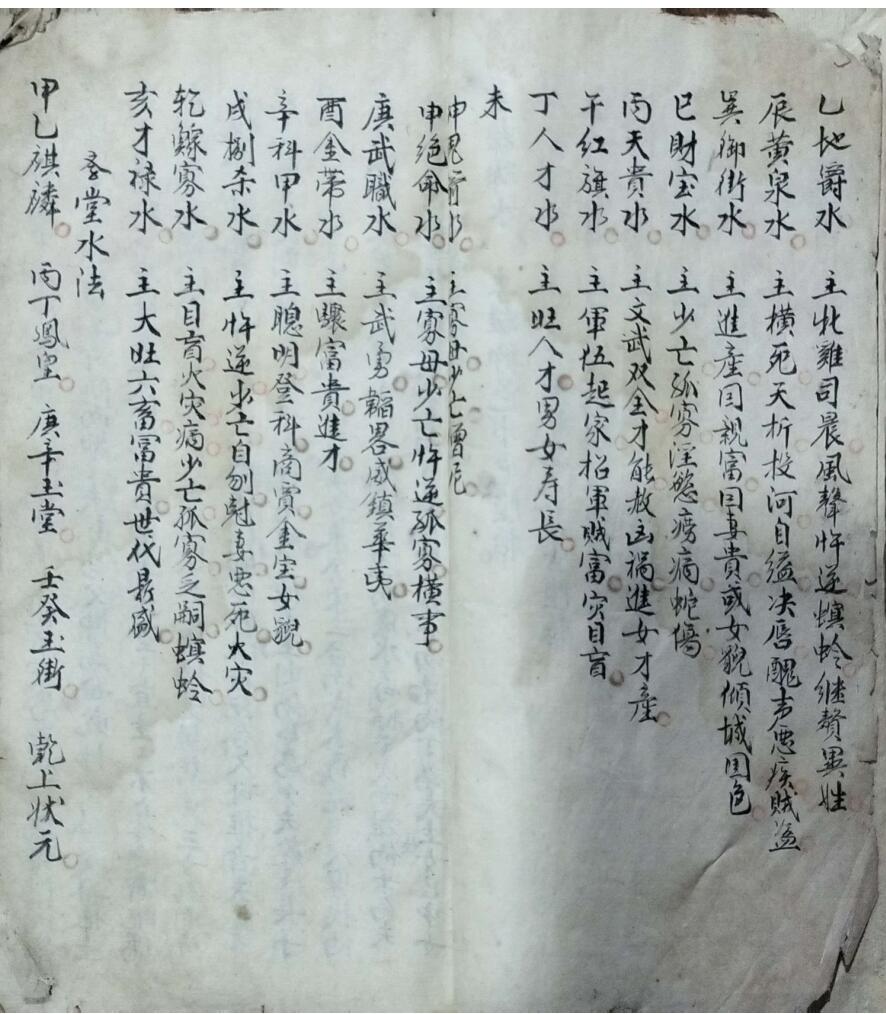 乙地爵水 主牝雞司晨風聲忤逆螟蛉继贅異姓
辰黄泉水 主橫死夭折投河自缢决唇醜声悪疾賊盗
巽御街水 主進產因親富因妻貴或女貌傾城国色
巳財宝水 主少亡孤寡淫慾癆病蛇傷
丙天貴水 主文武双全才能赦凶禍進女才產
午红旗水 主軍伍起家招軍賊富灾目盲
丁人才水 主旺人才男女寿長
未
申鬼水 主寡母少亡僧尼
申绝命水 主寡母少亡忤逆孤寡橫事
庚武職水 主武勇韜畧威鎮華夷
酉金带水 主驟富貴進才
辛科甲水 主聰明登科商賈金宝女貌
戌劫杀水 主忤逆少亡自刎尅妻悪死火灾
乾鰥寡水 主目盲火灾病少亡孤寡乏嗣螟蛉
亥才禄水 主大旺六畜富貴世代昌盛
堂水法
甲乙麒麟 丙丁鳳皇 庚辛玉堂 壬癸玉街 乾上状元